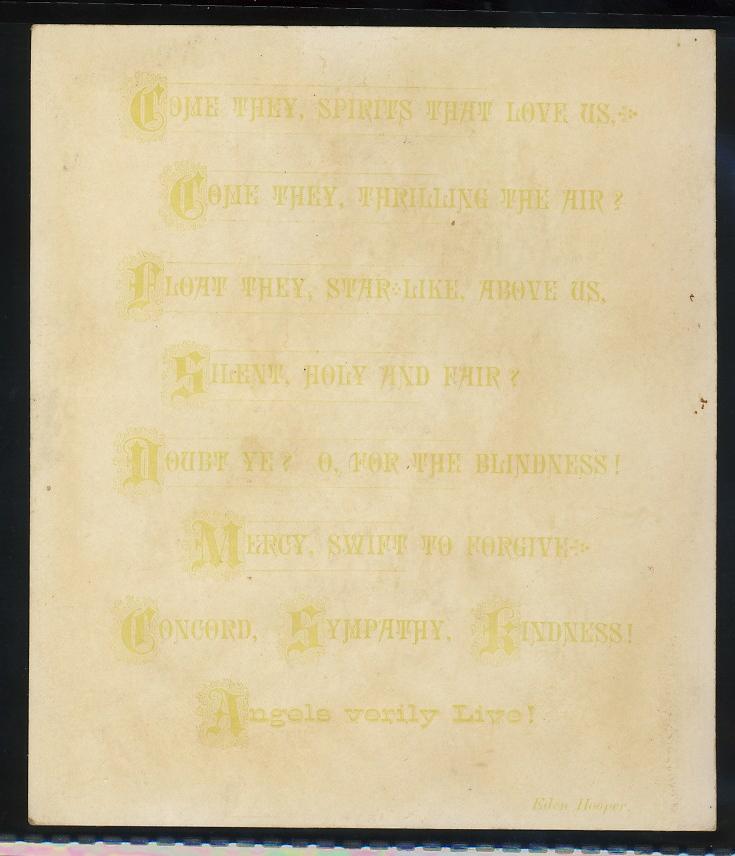 COME THEY, SPIRITS THAT LOVE US,
COME THEY, THRILLING THE AIR?
FLOAT THEY, STAR-LIKE, ABOVE US,
SILENT, HOLY AND FAIR?
DOUBT YE? O, FOR THE BLINDNESS!
MERCY, SWIFT TO FORGIVE
CONCORD, SYMPATHY, KINDNESS!
Angels verily Live!
Eden Hooper.